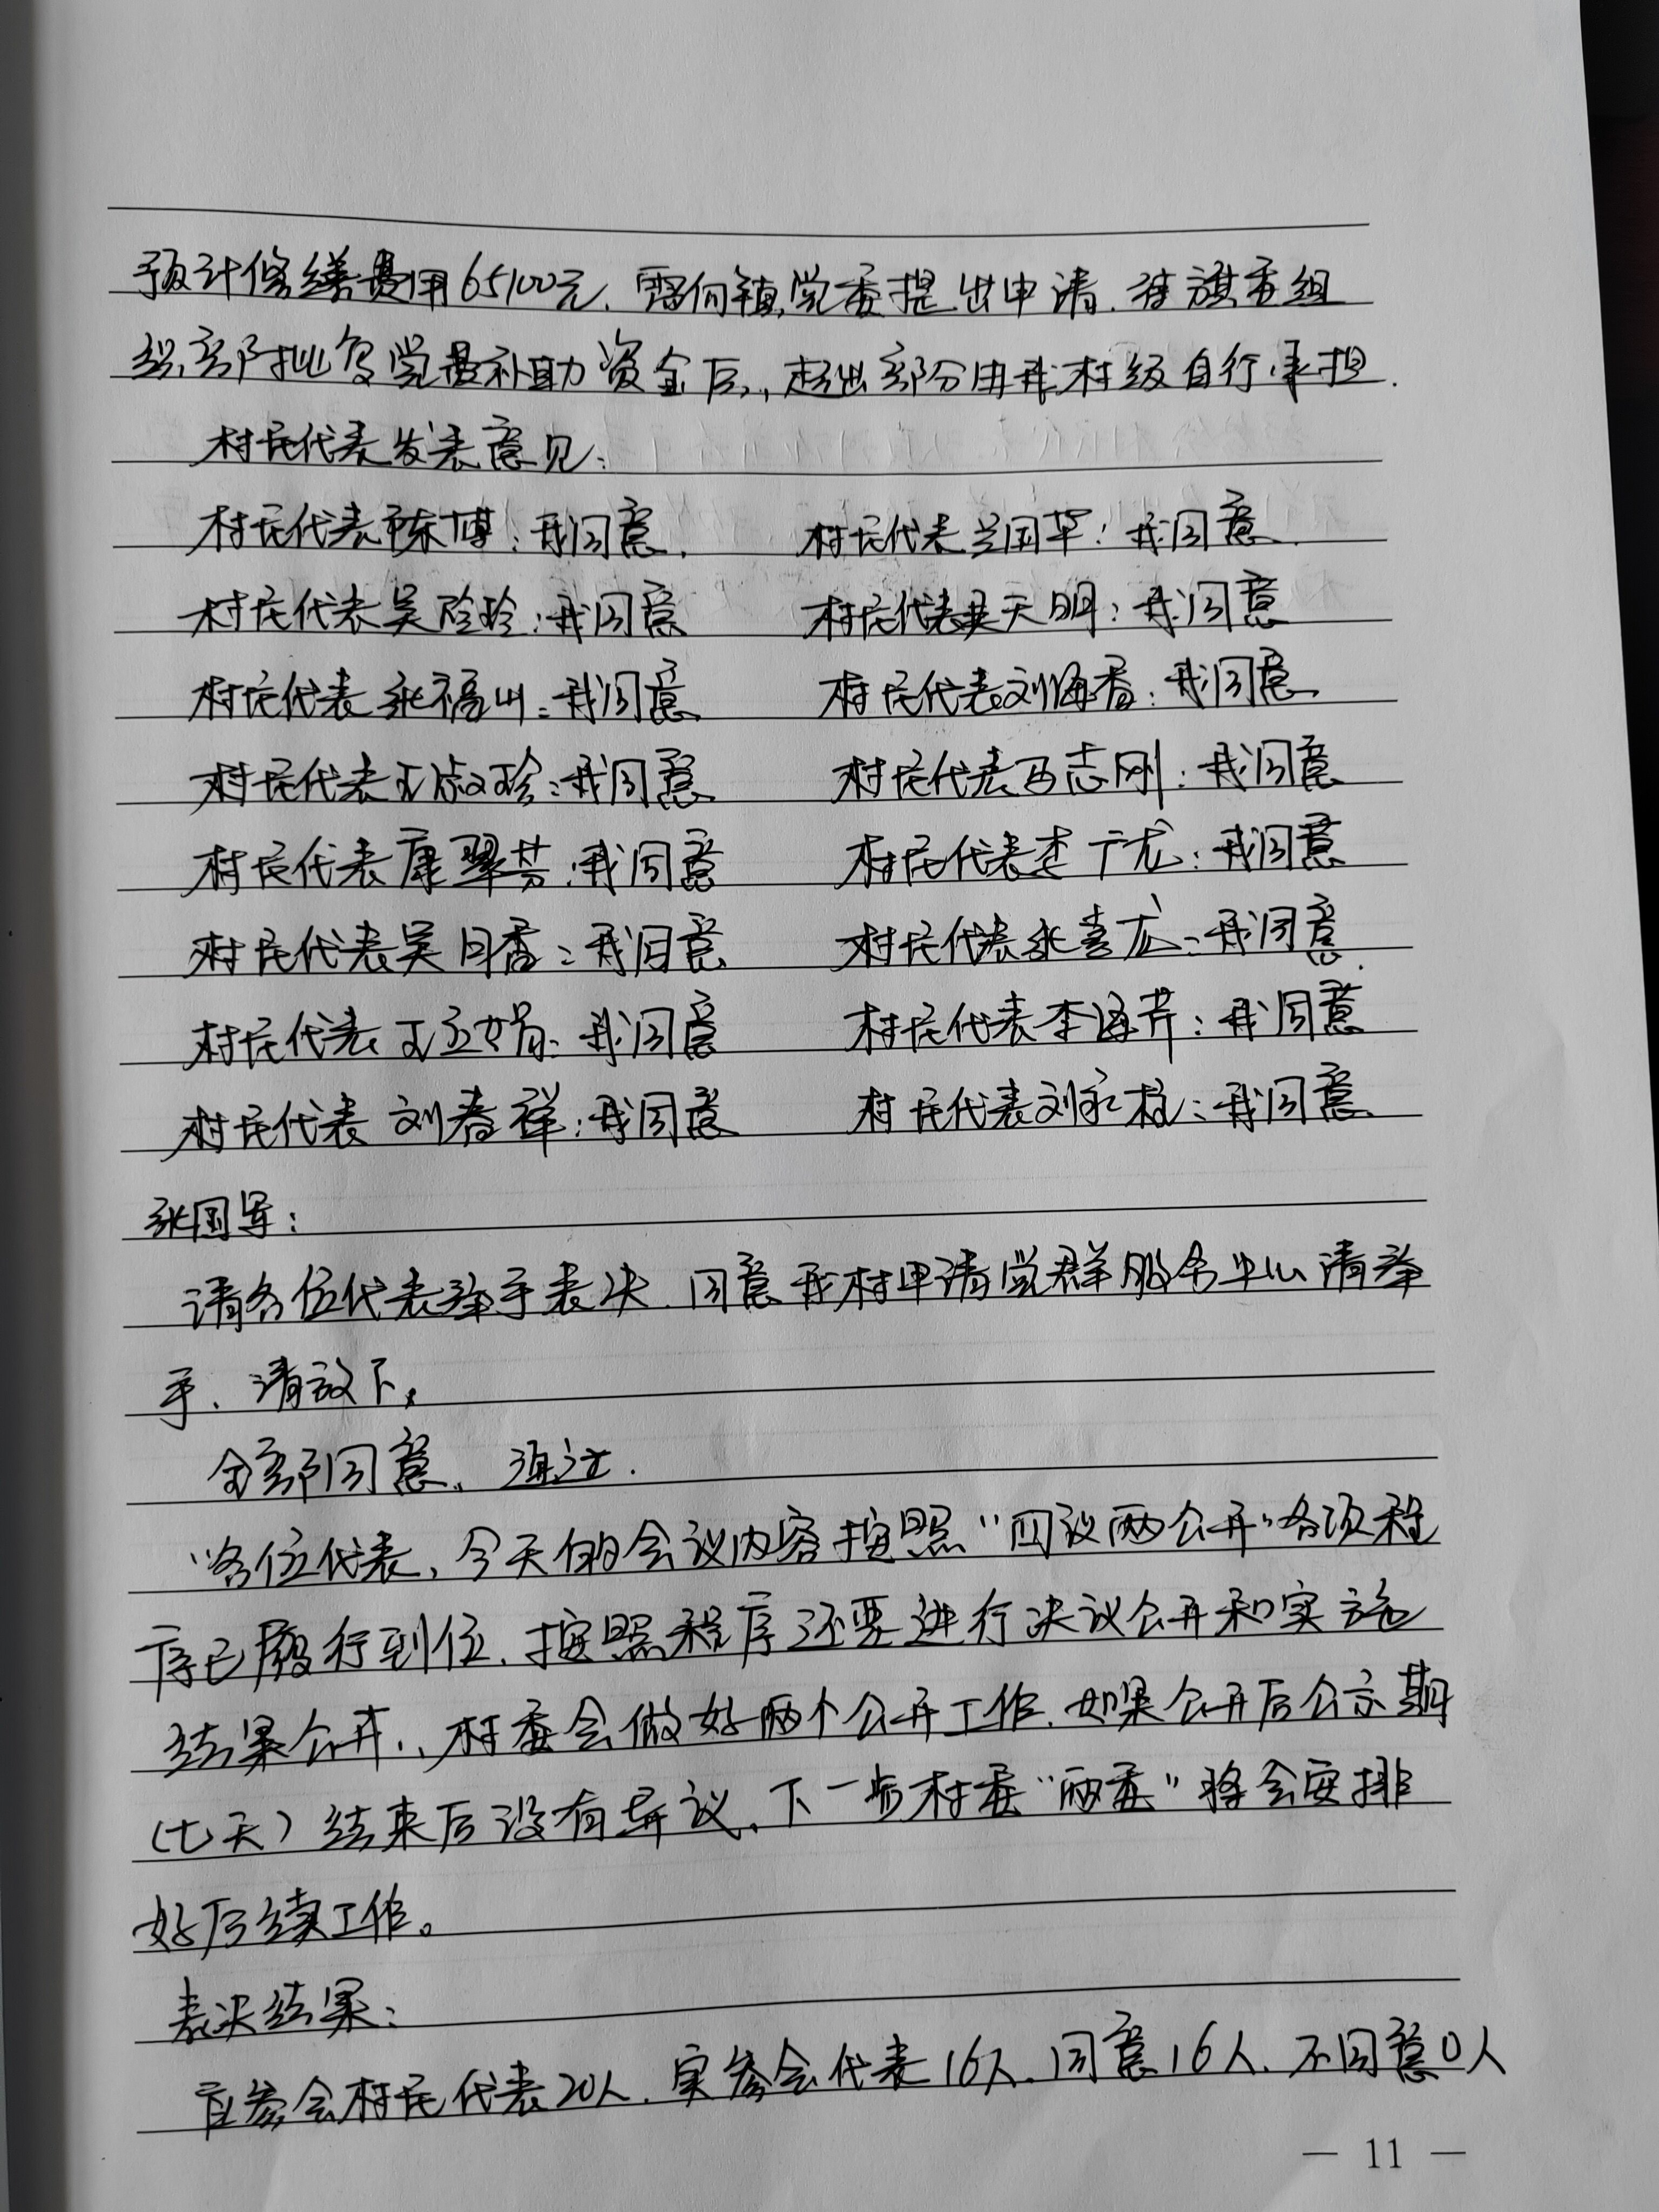 预计修缮费用65100元，需向镇党委提出申请，待旗委组
织部批复党费补助资金后，超出部分由我村级自行承担.
村民代表发表意见：
村民代表陈博：我同意. 村民代表兰国华：我同意.
村民代表吴玲玲：我同意 村民代表吴天明：我同意
村民代表张福山：我同意 村民代表刘海香：我同意.
村民代表王淑珍：我同意 村民代表冯志刚：我同意
村民代表康翠芳：我同意 村民代表李广龙：我同意
村民代表吴月香：我同意 村民代表张喜龙：我同意.
村民代表王立娟：我同意 村民代表李海芹：我同意
村民代表刘春祥：我同意 村民代表刘永枝：我同意
张国军：
请各位代表举手表决，同意我村申请党群服务中心请举
手、请放下，
全部同意，通过.
“各位代表，今天的会议内容按照“四议两公开”各项程
序已履行到位，按照程序还要进行决议公开和实施
结果公开，村委会做好两个公开工作，如果公开后公示期
（七天）结束后没有异议，下一步村委“两委”将会安排
好后续工作。
表决结果：
应参会村民代表20人，实参会代表16人，同意16人，不同意0人
— 11 —